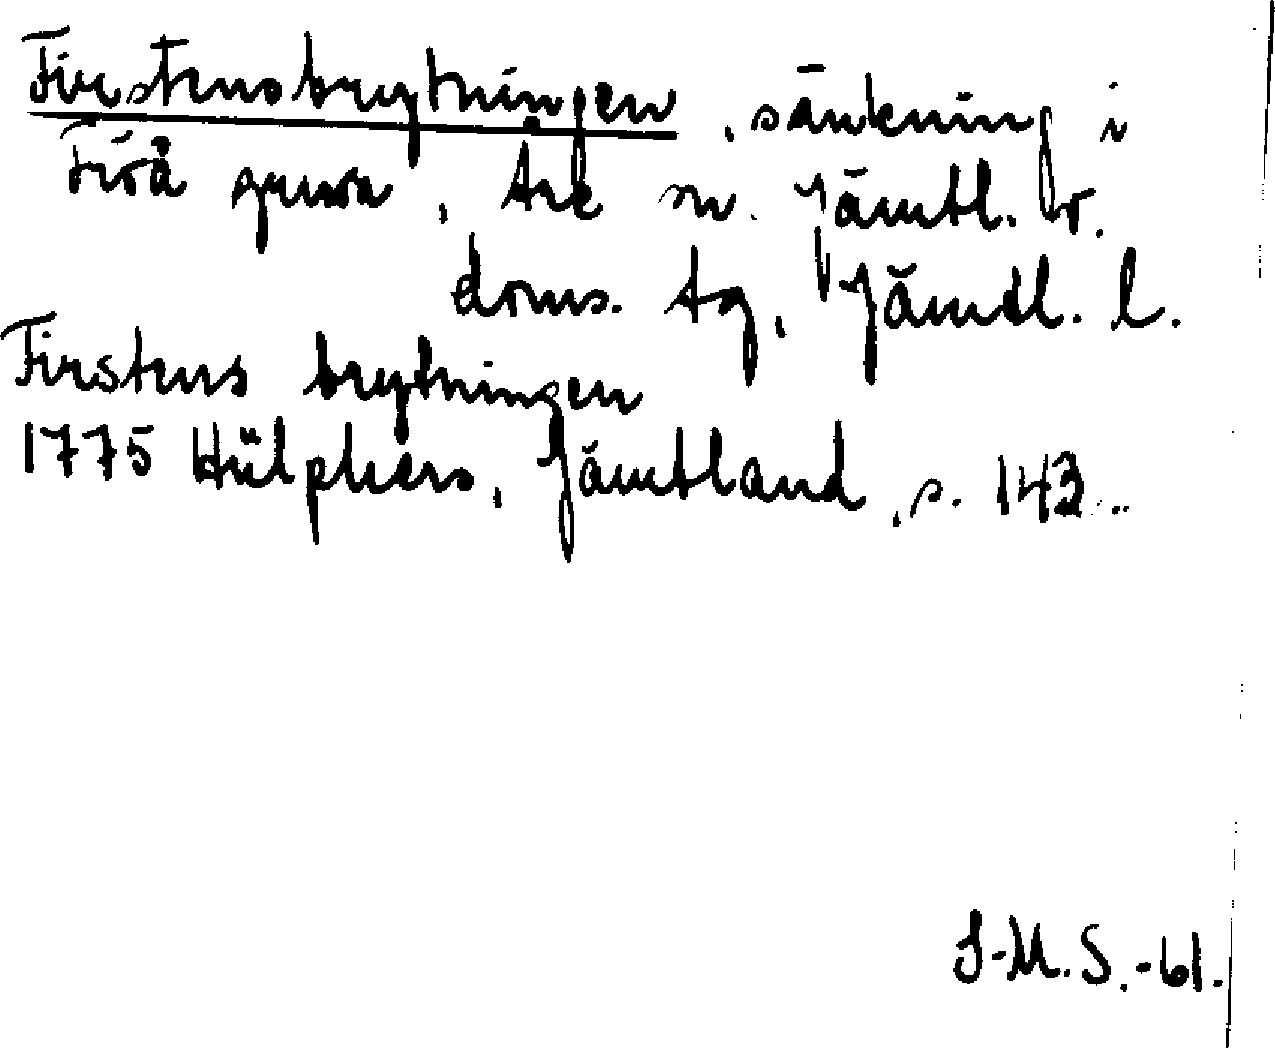 Firstensbrytningen, sänkning i
Fröå gruva, Åre sn. Jämtl. v.
doms. tg, Jämtl. l.
Firstens brytningen
1775 Hülphers, Jämtland, s. 143..
I-M.S.-61.